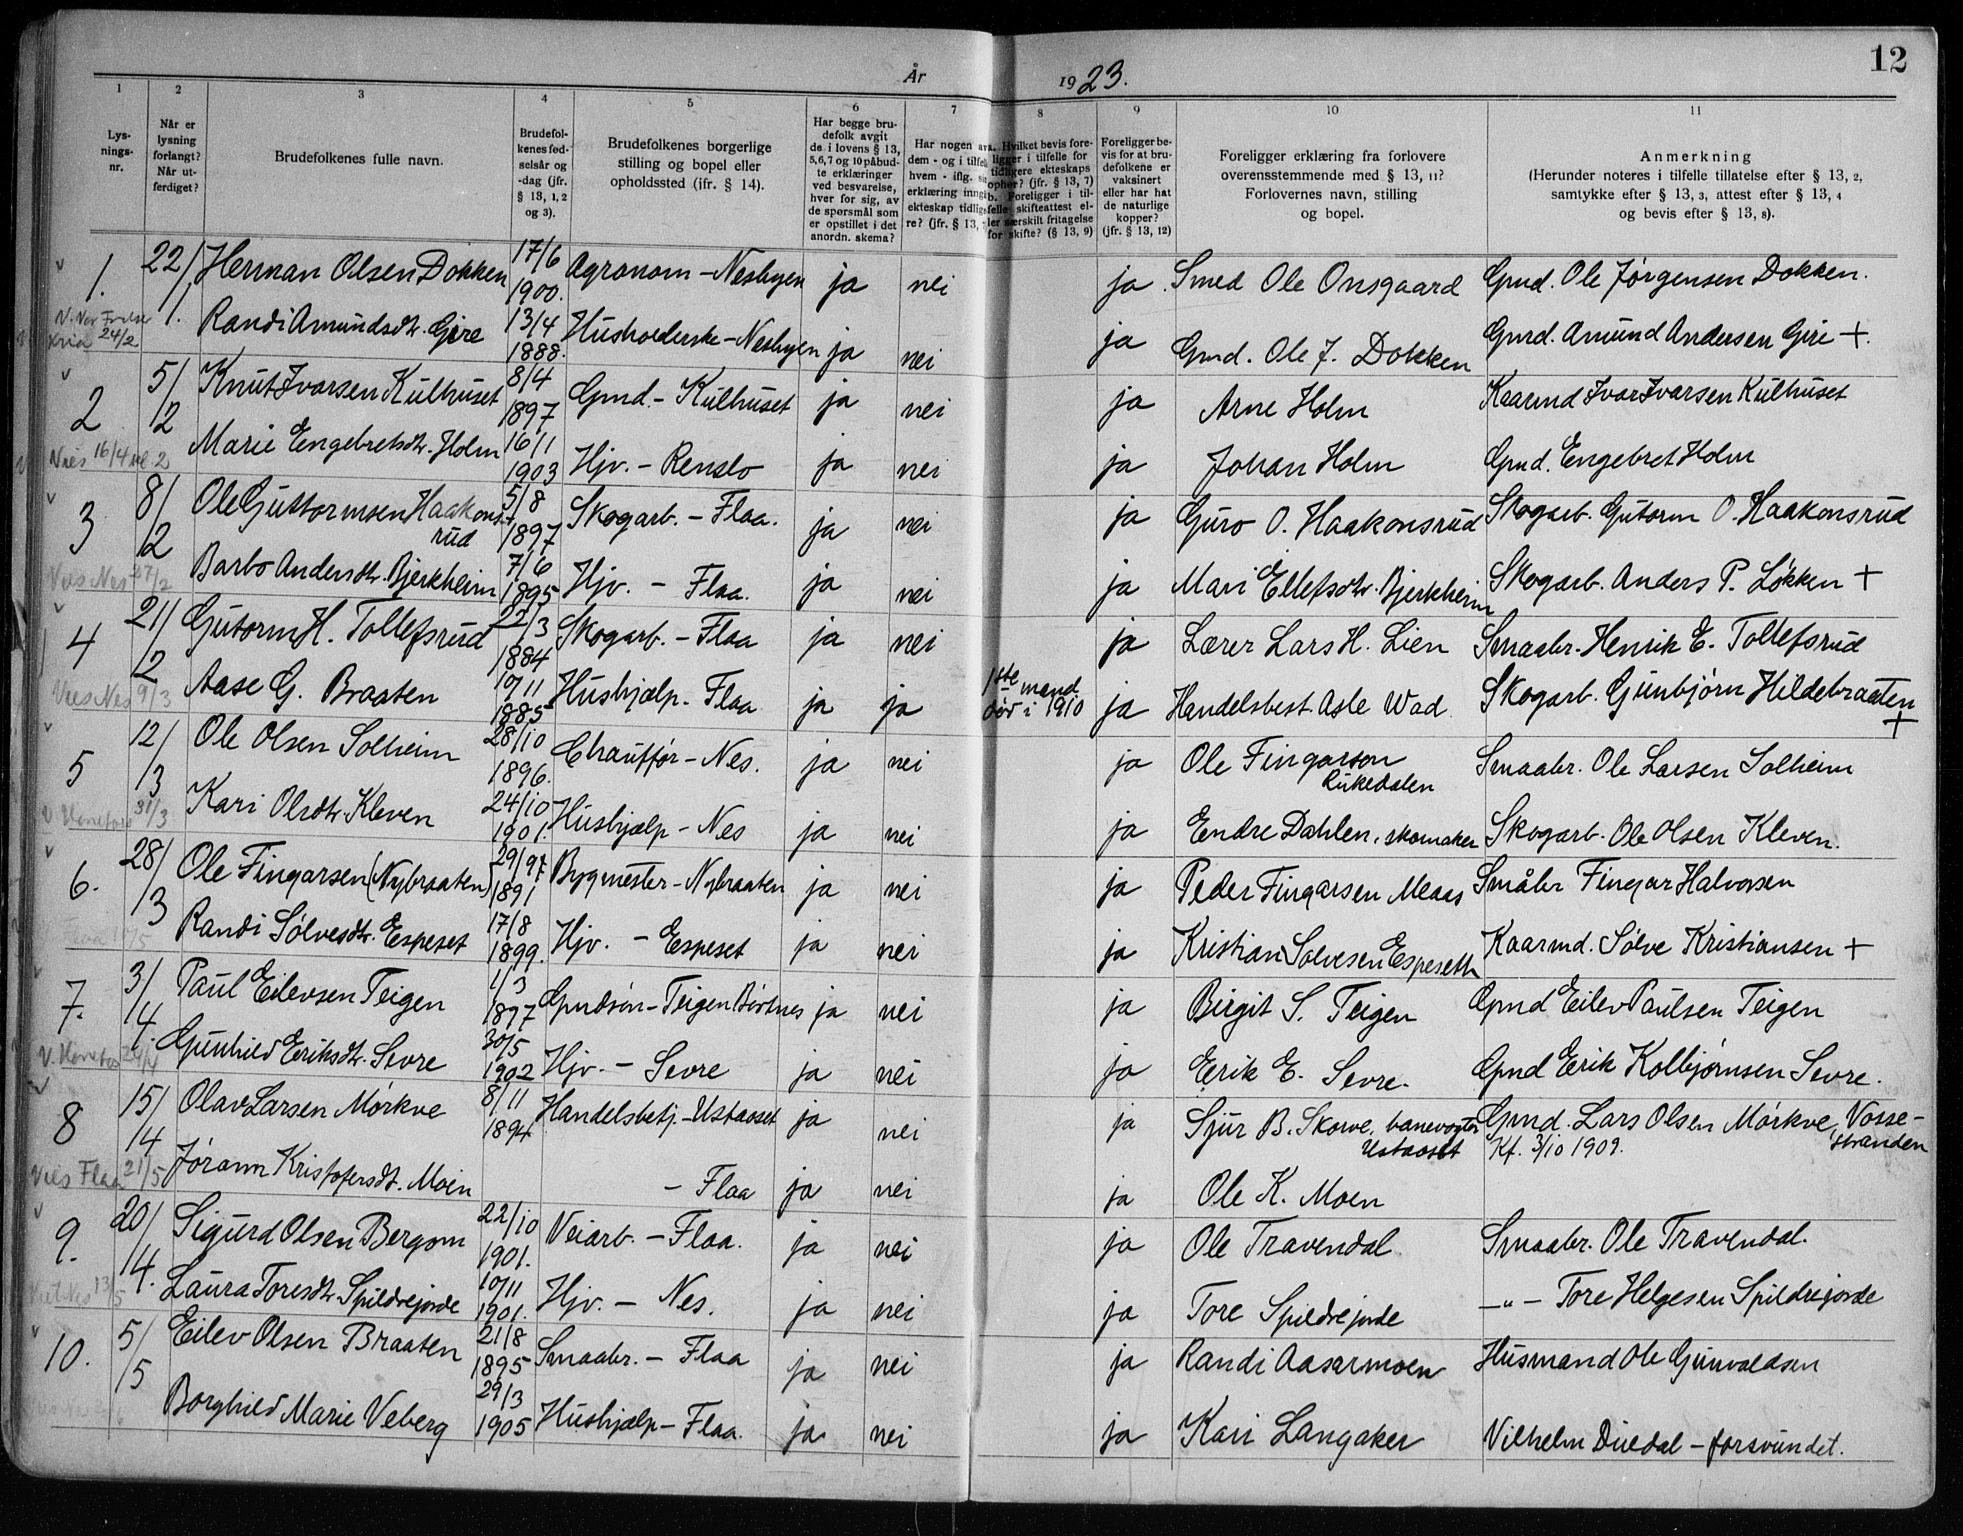 År 1923.
12
1 2 3 4 5 6 7 8 9 10 11
Lysningsnr.
Når er lysning forlangt? Når utferdiget?
Brudefolkenes fulle navn.
Brudefolkenes fødselsår og -dag (jfr. § 13, 1, 2 og 3).
Brudefolkenes borgerlige stilling og bopel eller opholdssted (jfr. § 14).
Har begge brudefolk avgit de i lovens § 13, 5, 6, 7 og 10 påbudte erklæringer ved besvarelse, hver for sig, av de spørsmål som er opstillet i det anordn. skema?
Har nogen av dem - og i tilfelle hvem - iflg. sin erklæring inngå ekteskap tidligere? (jfr. § 13, 7
a. Hvilket bevis foreligger i tilfelle for tidligere ekteskaps ophør? (jfr. § 13, 7) b. Foreligger i tilfelle skifteattest eller særskilt fritagelse for skifte? (§ 13, 9)
Foreligger bevis for at brudefolkene er vaksinert eller har hat de naturlige kopper? (jfr. § 13, 12)
Foreligger erklæring fra forlovere overensstemmende med § 13, 11? Forlovernes navn, stilling og bopel.
Anmerkning (Herunder noteres i tilfelle tillatelse efter § 13, 2, samtykke efter § 13, 3, attest efter § 13, 4 og bevis efter § 13, 8).
1. 22/1. Herman Olsen Dokken 17/6 1900. Agronom - Nesbyen ja nei ja Smed Ole Onsgaard Gmd. Ole Jørgensen Dokken.
24/2 Randi Amundsdtr. Gire 13/4 1888. Husholderske - Nesbyen ja nei ja Gmd. Ole J. Dokken Gmd. Amund Andersen Gire +.
2 5/2 Knut Ivarsen Kulhuset 8/4 1897 Gmd. - Kulhuset ja nei ja Arne Holm Kaarmd Ivar Ivarsen Kulhuset
16/4 Marie Engebretsdtr. Holm 16/11 1903 Hjv. - Renslo ja nei ja Johan Holm Gmd. Engebret Holm
3 8/2 Ole Guttormsen Haakonsrud 5/8 1897 Skogarb. - Flaa. ja nei ja Guro O. Haakonsrud Skogarb. Gutorm O. Haakonsrud
Vies Nes 27/2 Barbo Andersdtr. Bjerkheim 7/6 1895 Hjv. - Flaa. ja nei ja Mari Ellefsdtr. Bjerkheim Skogarb. Anders P. Løkken +
4 21/2 Gutorm H. Tollefsrud 22/3 1884 Skogarb. - Flaa ja nei ja Lærer Lars H. Lien Smaabr. Henrik E. Tollefsrud
Vies Nes 9/3 Aase G. Braaten 19/11 1885 Hushjælp - Flaa ja ja 1ste mand død i 1910 ja Handelsbest. Asle Wad Skogarb. Gunbjørn Hildebraaten +
5 12/3 Ole Olsen Solheim 28/10 1896. Chauffør - Nes. ja nei ja Ole Fingarson Rukedalen Smaabr. Ole Larsen Solheim
V. Hønefos 31/3 Kari Olsdtr. Kleven 24/10 1901. Hushjælp - Nes ja nei ja Endre Dahlen, skomaker Skogarb. Ole Olsen Kleven.
6. 28/3 Ole Fingarsen (Nybraaten) 29/9 1891 Bygmester - Nybraaten ja nei ja Peder Fingarsen Meaas Småbr Fingar Halvorsen
Randi Sølvesdtr. Espeset 17/8 1899. Hjv. - Espeset ja nei ja Kristian Solvesen Espeseth Kaarmd. Sølve Kristiansen +
7. 3/4. Paul Eilevsen Teigen 1/3 1897 Gmdsøn - Teigen Børtnes ja nei ja Birgit S. Teigen Gmd Eilev Paulsen Teigen
V. Hønefos 24/4 Gunhild Eriksdtr. Sevre 30/5 1902 Hjv. - Sevre ja nei ja Erik E. Sevre. Gmd Erik Kolbjørnsen Sevre.
8 15/4 Olav Larsen Mørkve 8/11 1894 Handelsbetj. - Ustaoset ja nei ja Sjur B. Skorve, banevogter Ustaoset Gmd. Lars Olsen Mørkve, Vossestranden Kf. 3/10 1909.
Vies Flaa 21/5 Jørann Kristofersdt. Moen - Flaa ja nei ja Ole K. Moen
9. 20/4. Sigurd Olsen Bergom 22/10 1901. Veiarb. - Flaa. ja nei ja Ole Travendal Smaabr. Ole Travendal.
13/5 Laura Toresdtr. Spildrejorde 10/11 1901. Hjv. - Nes. ja nei ja Tore Spildrejorde -"- Tore Helgesen Spildrejorde
10. 5/5 Eilev Olsen Braaten 21/8 1895 Smaabr. - Flaa ja nei ja Randi Aasarmoen Husmand Ole Gunvaldsen
Borghild Marie Veberg 29/3 1905 Hushjælp - Flaa. ja nei ja Kari Langaker Vilhelm Duedal - forsvundet.